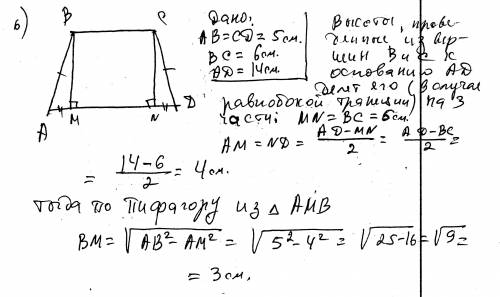 б)
B C
A M N D
Дано:
AB=CD=5см.
BC=6см.
AD=14см.
Высоты, прове-
денные из вер-
шин B и C к
основанию AD
делят его (в случае
равнобокой трапеции) на 3
части: MN=BC=6см.
AM=ND= (AD-MN)/2 = (AD-BC)/2 =
= (14-6)/2 = 4см.
тогда по Пифагору из △ AMB
BM=√(AB²-AM²) = √(5²-4²) = √(25-16) = √9 =
= 3см.